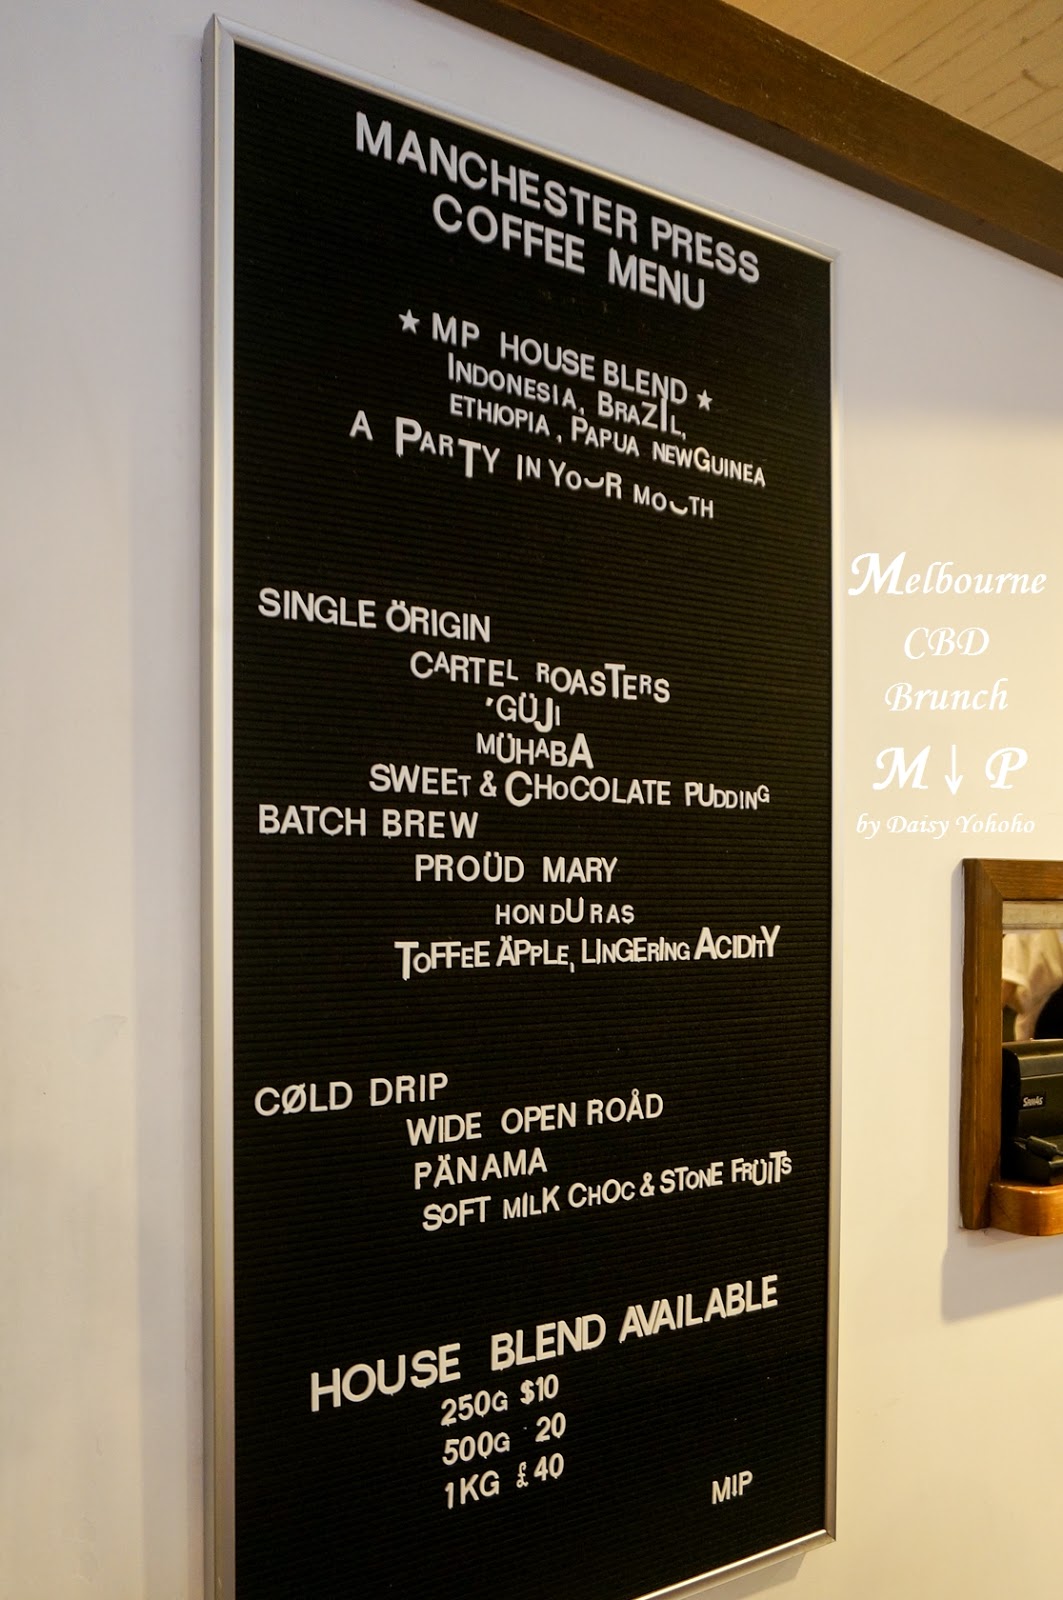 MANCHESTER PRESS
COFFEE MENU
★ MP HOUSE BLEND ★
INDONESIA, BRAZIL,
ETHIOPIA, PAPUA NEWGUINEA
A PARTY IN YOUR MOUTH
SINGLE ÖRIGIN
CARTEL ROASTERS
'GÜJI
MÜHABA
SWEET & CHOCOLATE PUDDING
BATCH BREW
PROÜD MARY
HONDURAS
TOFFEE ÄPPLE, LINGERING ACIDITY
CØLD DRIP
WIDE OPEN ROÅD
PÄNAMA
SOFT MILK CHOC & STONE FRÜITS
HOUSE BLEND AVAILABLE
250G $10
500G 20
1KG £40
MIP
Melbourne
CBD
Brunch
M↓P
by Daisy Yohoho